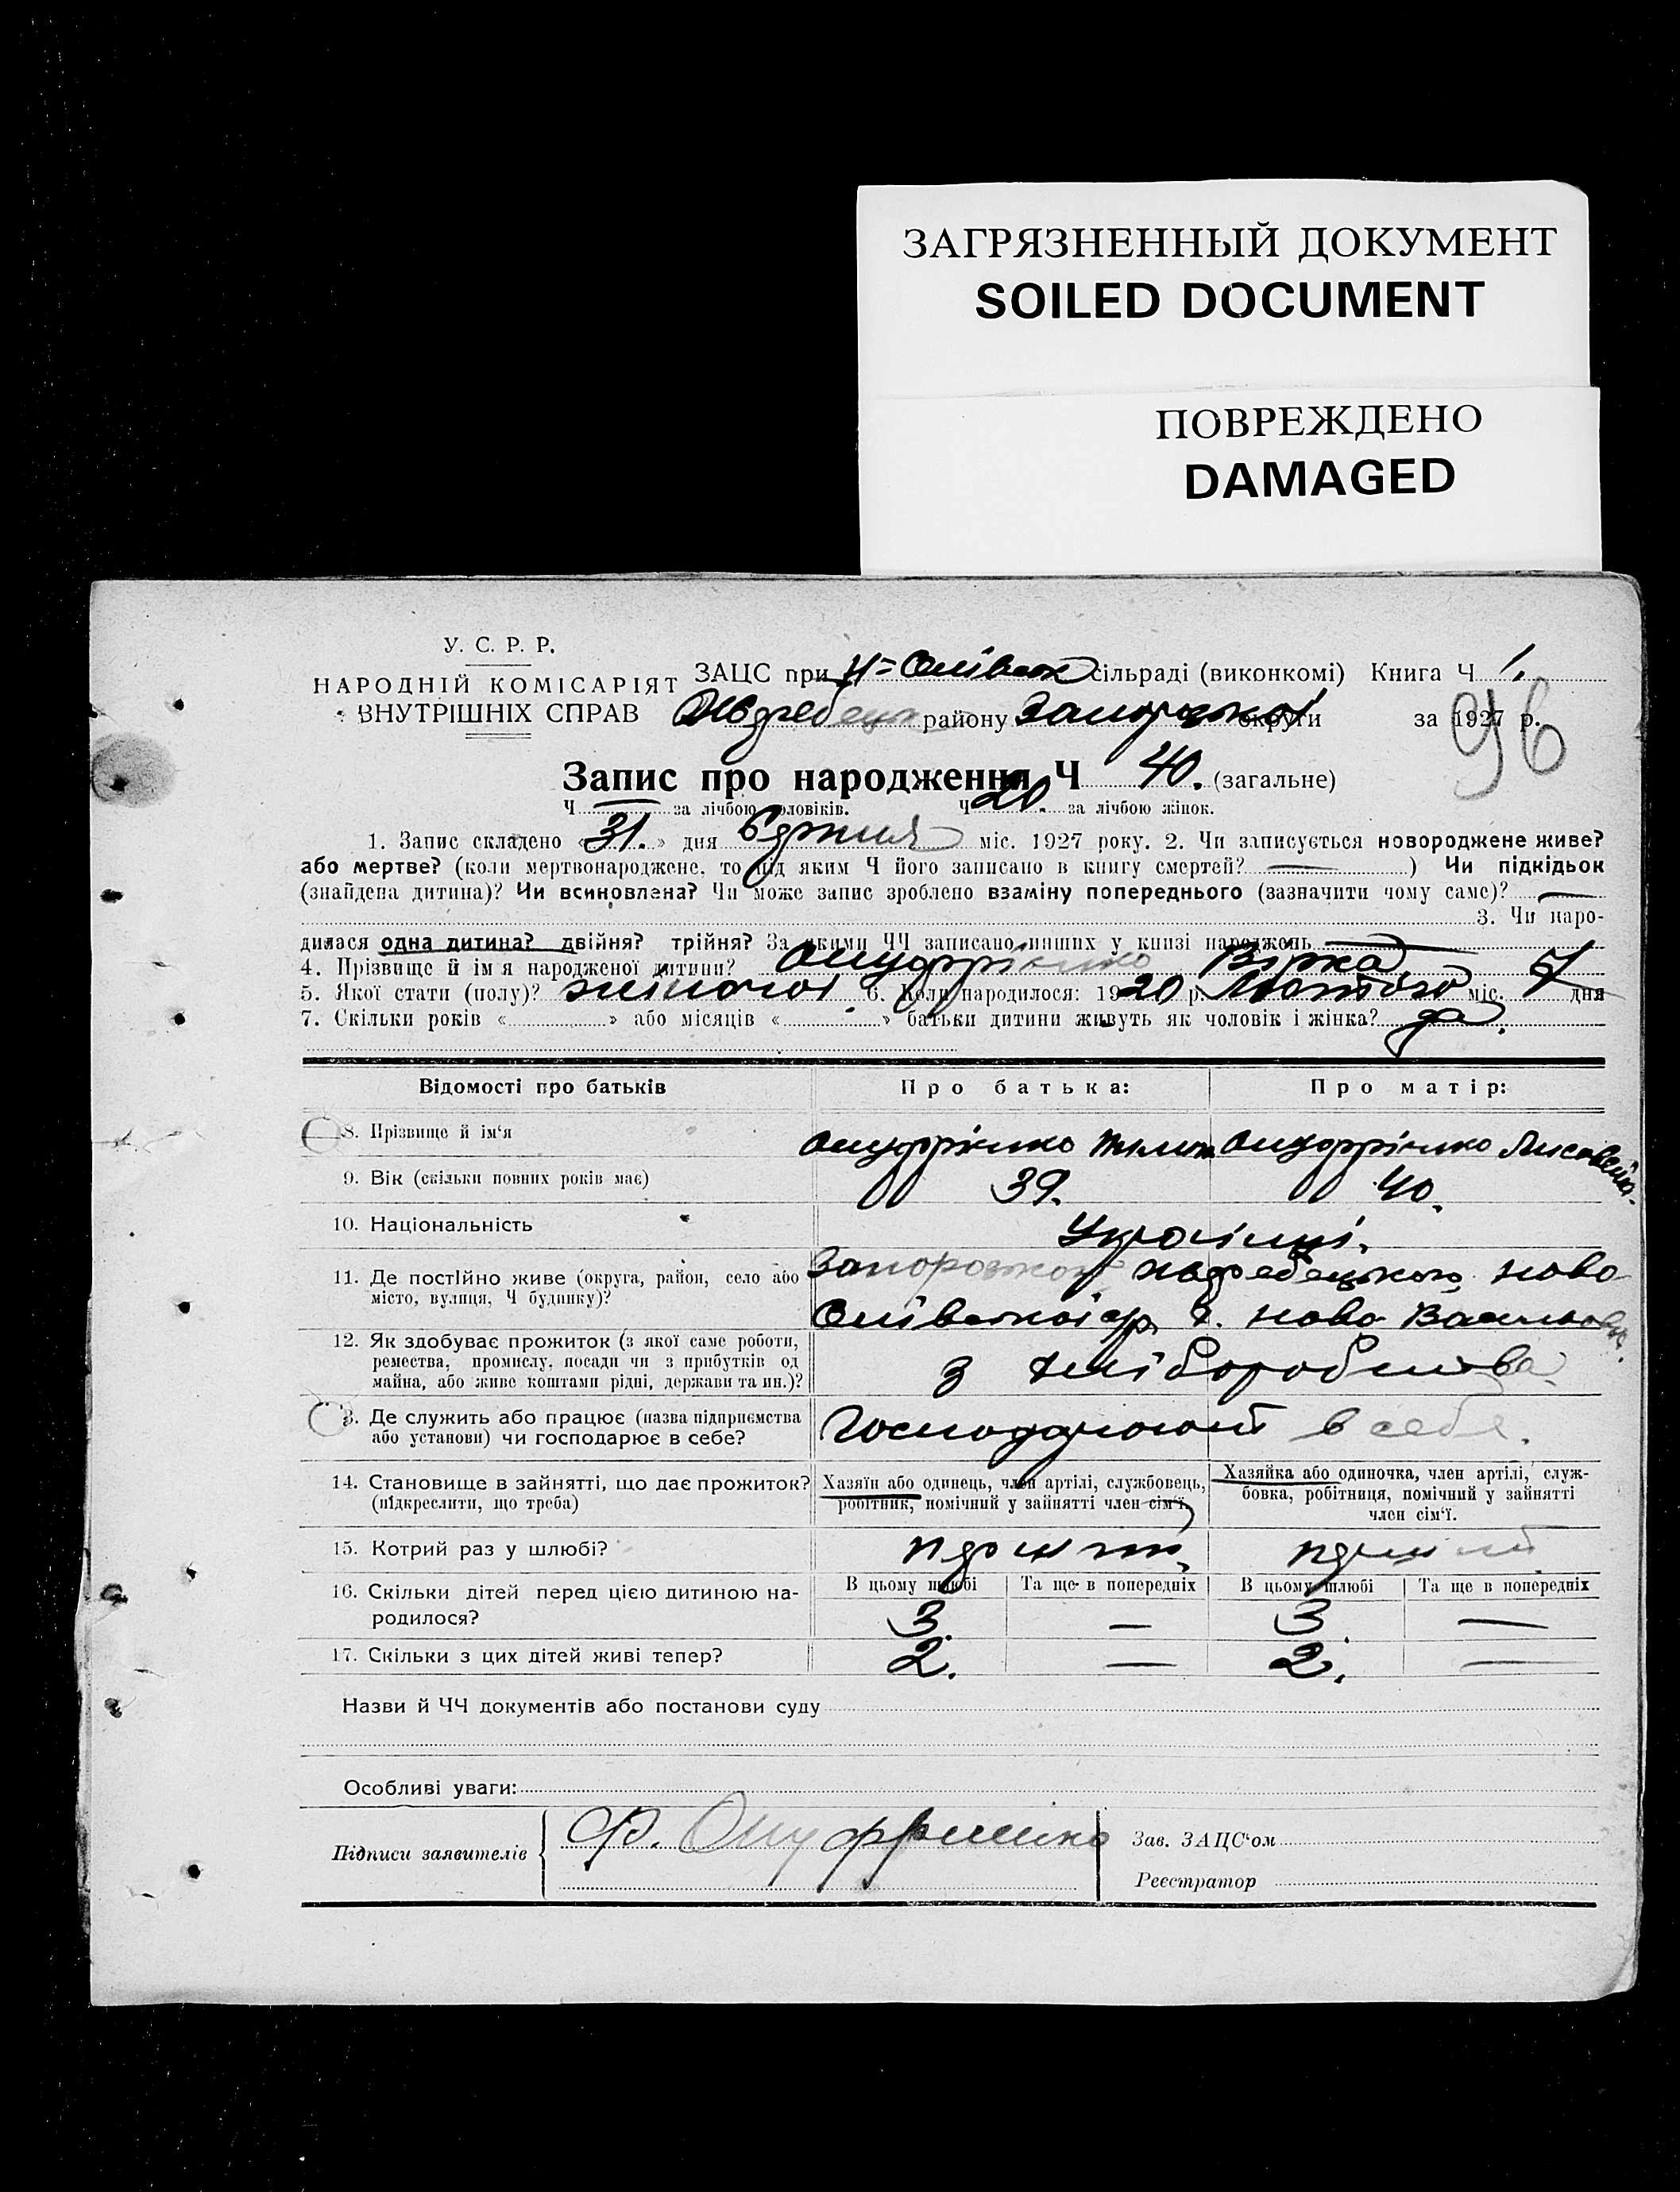 ЗАГРЯЗНЕННЫЙ ДОКУМЕНТ
SOILED DOCUMENT
ПОВРЕЖДЕНО
DAMAGED
У. С. Р. Р.
НАРОДНІЙ КОМІСАРІЯТ
ВНУТРІШНІХ СПРАВ
ЗАЦС при сільраді (виконкомі) Книга Ч 1.
району округи за 1927 р.
96
Запис про народження Ч 40. (загальне)
Ч — за лічбою чоловіків. Ч 20. за лічбою жінок.
1. Запис складено « 31. » дня міс. 1927 року. 2. Чи записується новороджене живе?
або мертве? (коли мертвонароджене, то під яким Ч його записано в книгу смертей? — ) Чи підкідьок
(знайдена дитина)? Чи всиновлена? Чи може запис зроблено взаміну попереднього (зазначити чому саме)? —
3. Чи наро-
дилася одна дитина? двійня? трійня? За якими ЧЧ записано инших у книзі народжень —
4. Прізвище й ім'я народженої дитини? Вірка
5. Якої стати (полу)? жіночої 6. Коли народилося: 1920 р. Лютого міс. 7 дня
7. Скільки років « » або місяців « » батьки дитини живуть як чоловік і жінка? да.
Відомості про батьків Про батька: Про матір:
8. Прізвище й ім'я
9. Вік (скільки повних років має) 39. 40.
10. Національність Українці.
11. Де постійно живе (округа, район, село або
місто, вулиця, Ч будинку)?
12. Як здобуває прожиток (з якої саме роботи,
ремества, промислу, посади чи з прибутків од
майна, або живе коштами рідні, держави та ин.)?
з хліборобства
13. Де служить або працює (назва підприємства
або установи) чи господарює в себе?
в себе.
14. Становище в зайнятті, що дає прожиток?
(підкреслити, що треба)
Хазяїн або одинець, член артілі, службовець,
робітник, помічний у зайнятті член сім'ї,
Хазяйка або одиночка, член артілі, служ-
бовка, робітниця, помічний у зайнятті
член сім'ї.
15. Котрий раз у шлюбі?
16. Скільки дітей перед цією дитиною на-
родилося?
В цьому шлюбі Та ще в попередніх В цьому шлюбі Та ще в попередніх
3. — 3. —
17. Скільки з цих дітей живі тепер? 2. — 2. —
Назви й ЧЧ документів або постанови суду
Особливі уваги:
Підписи заявителів
Зав. ЗАЦС'ом
Реєстратор